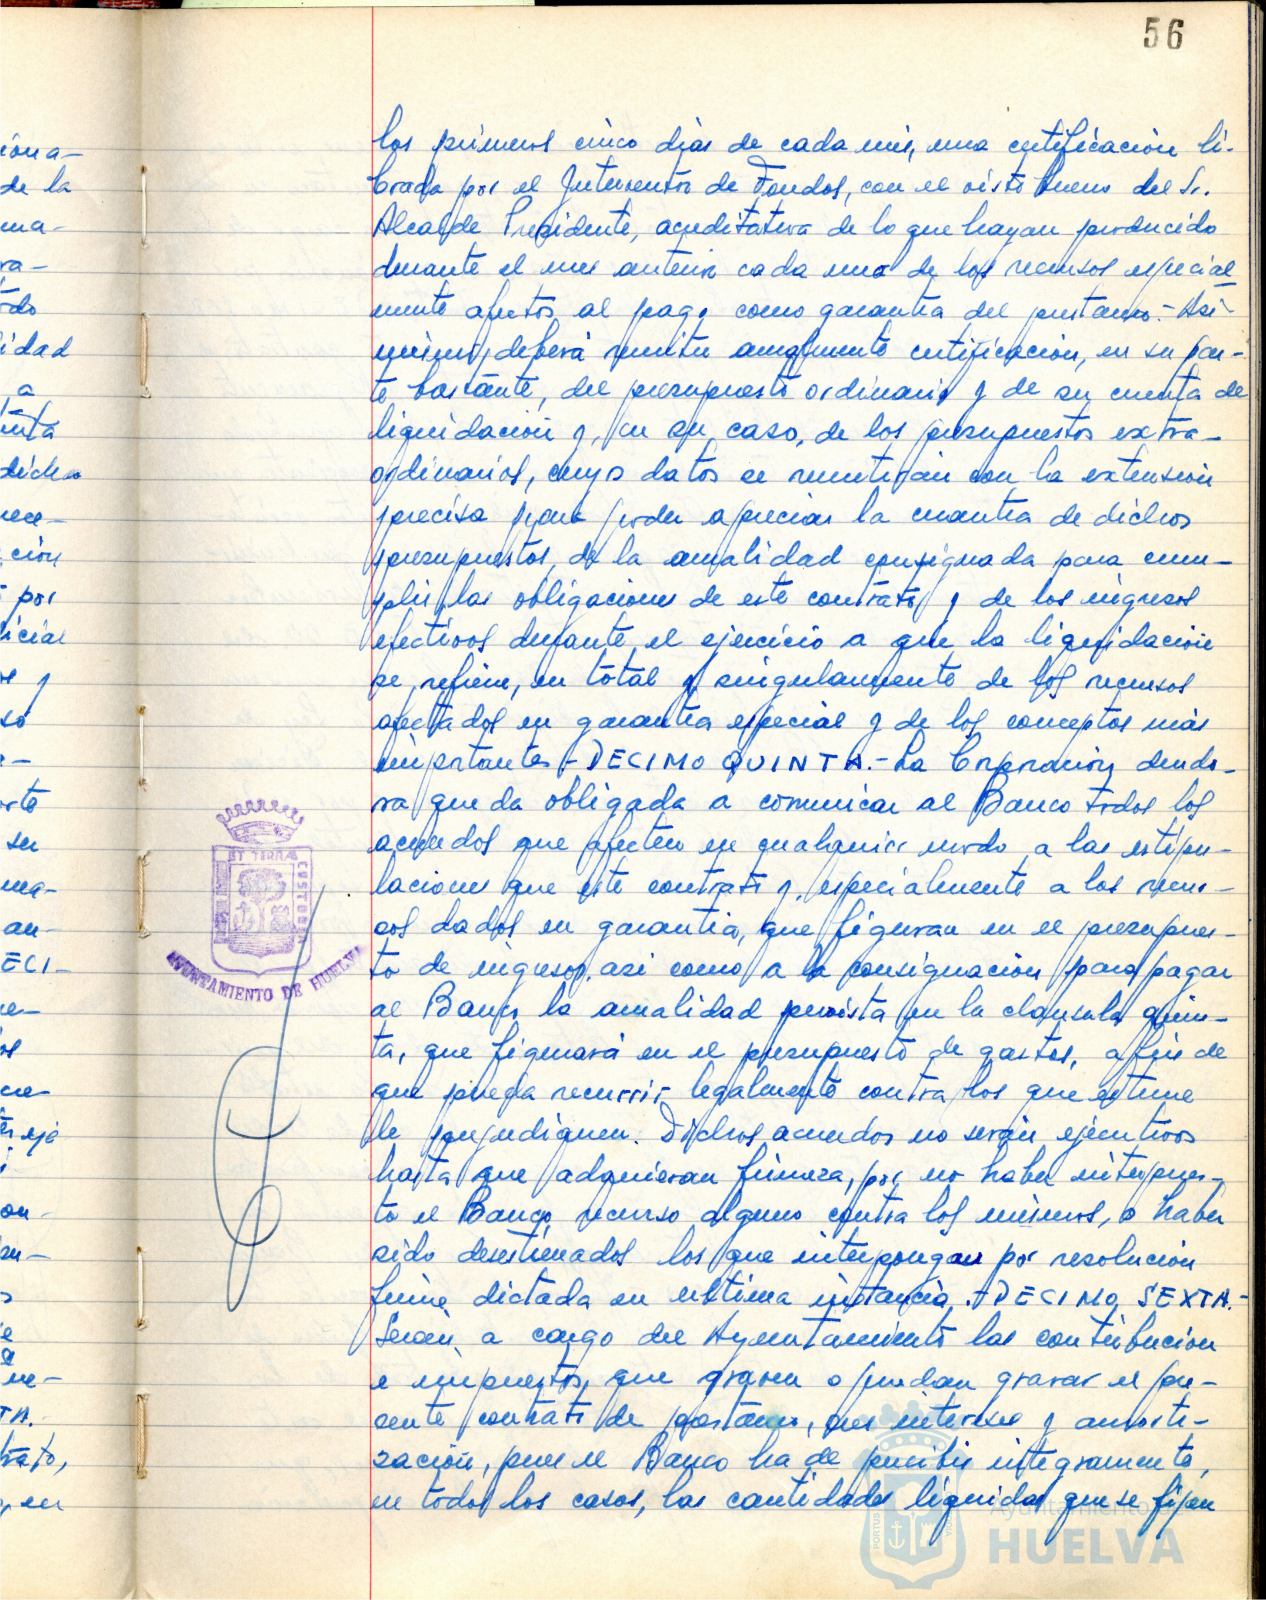 56
los primeros cinco dias de cada mes, una certificación li-
brada por el Interventor de Fondos, con el visto bueno del Sr.
Alcalde Presidente, acreditativa de lo que hayan producido
durante el mes anterior cada uno de los recursos especial
mente afectos al pago como garantia del prestamo.- Asi-
mismo, deberá remitir anualmente certificación, en su par-
te bastante, del presupuesto ordinario y de su cuenta de
liquidación y, en su caso, de los presupuestos extra-
ordinarios, cuyos datos se remitirán con la extension
precisa para poder apreciar la cuantia de dichos
presupuestos, de la anualidad consignada para cum-
plir las obligaciones de este contrato y de los ingresos
efectivos durante el ejercicio a que la liquidación
se refiere, en total y singularmente de los recursos
afectados en garantia especial y de los conceptos más
importantes.- DECIMO QUINTA.- La Corporación deudo-
ra queda obligada a comunicar al Banco todos los
acuerdos que afecten en cualquier modo a las estipu-
laciones que este contrato y, especialmente a los recur-
sos dados en garantia, que figuran en el presupues-
to de ingresos, asi como a la consignación para pagar
al Banco la anualidad prevista en la clausula quin-
ta, que figurará en el presupuesto de gastos, a fin de
que pueda recurrir legalmente contra los que estime
le perjudiquen. Dichos acuerdos no serán ejecutivos
hasta que adquieran firmeza, por no haber interpues-
to el Banco recurso alguno contra los mismos, o haber
sido desestimados los que interpongan por resolución
firme dictada en ultima instancia.- DECIMO SEXTA.-
Serán a cargo del Ayuntamiento las contribucion
e impuestos, que graven o puedan gravar el pre-
sente contrato de prestamo, sus intereses y amorti-
zación, pues el Banco ha de percibir integramente,
en todos los casos, las cantidades liquidas que se fijan
ET TERRAE
CUSTODIA
AYUNTAMIENTO DE HUELVA
iona-
de la
ma-
ra-
idad
a
dichas
ción
por
icial
y
su
an-
ECI-
TA.
Ayuntamiento de
HUELVA
PORTUS